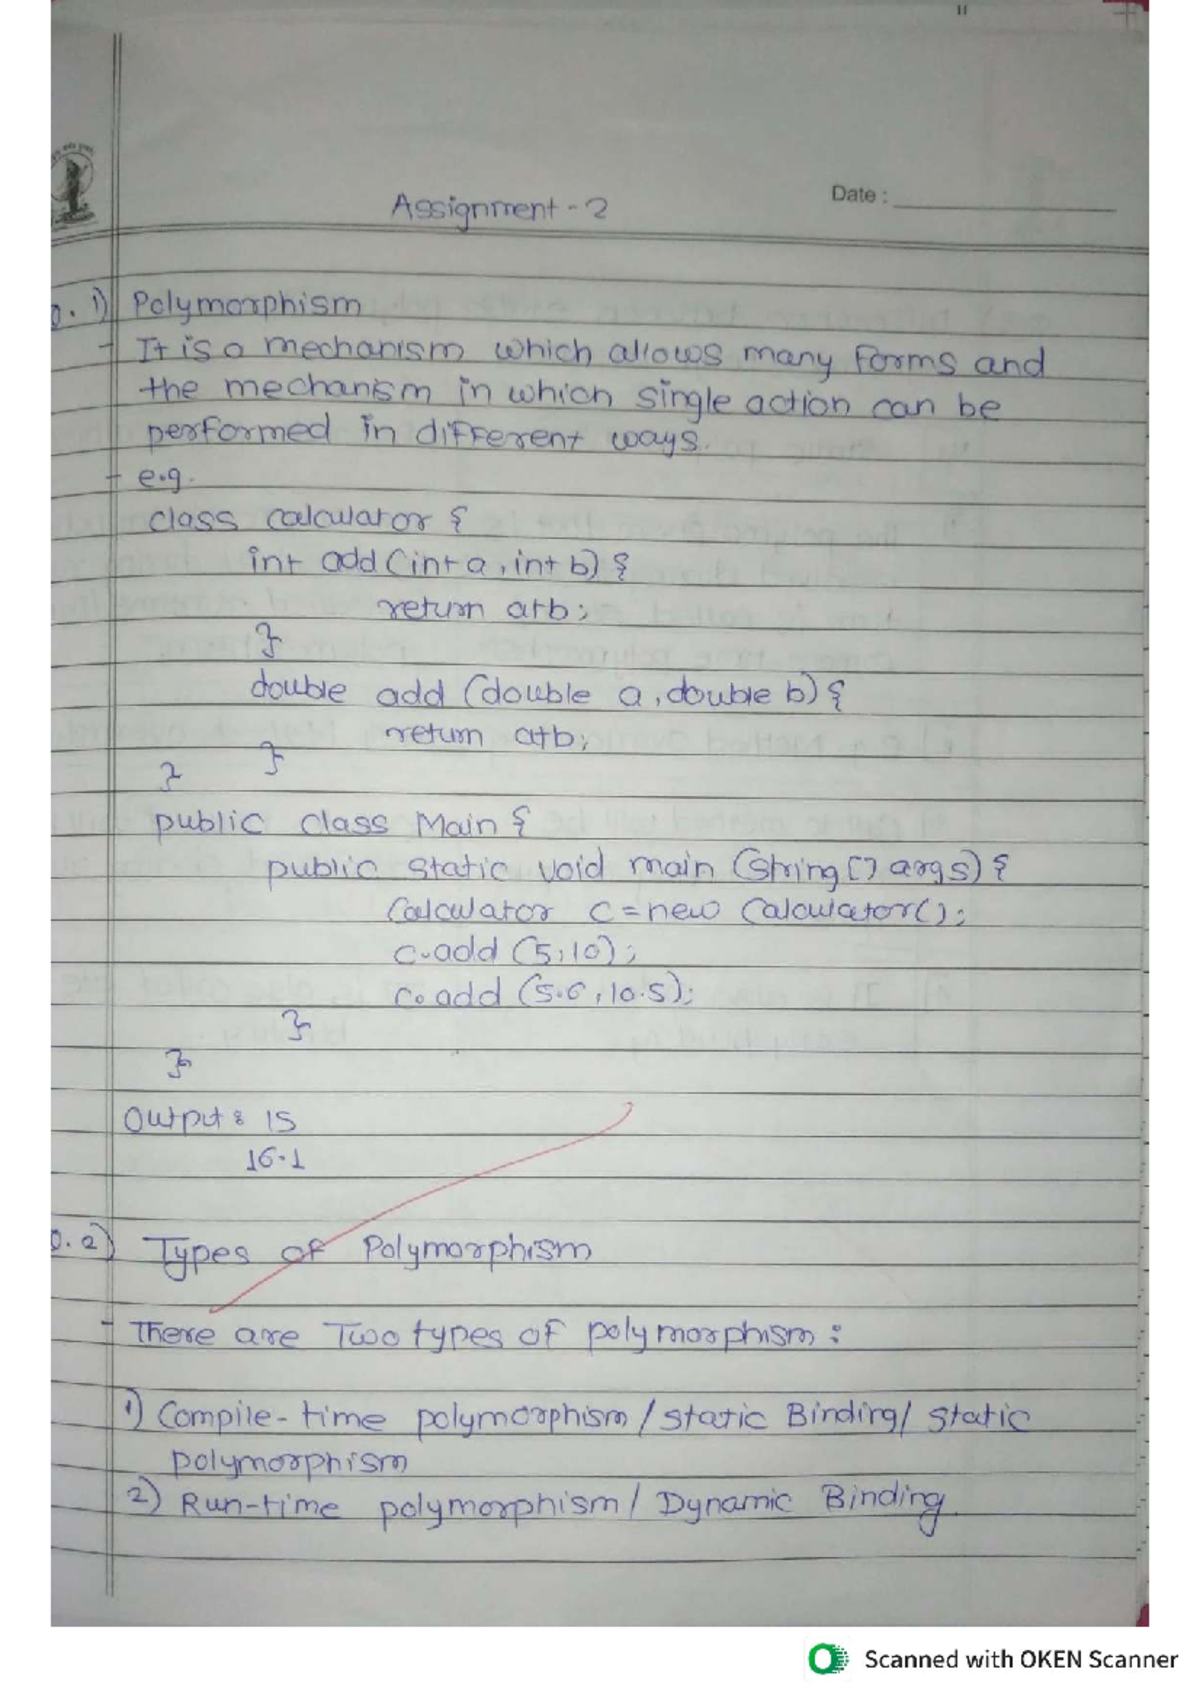 Assignment - 2
Date :
Q. 1) Polymorphism
- It is a mechanism which allows many forms and
the mechanism in which single action can be
performed in different ways.
- e.g.
class calculator {
int add (int a, int b) {
return a+b;
}
double add (double a, double b) {
return a+b;
}
}
public class Main {
public static void main (String [] args) {
Calculator c = new Calculator();
c.add (5,10);
c.add (5.6, 10.5);
}
}
Output : 15
16.1
Q. 2) Types of Polymorphism
- There are Two types of polymorphism :
1) Compile-time polymorphism / Static Binding / Static
polymorphism
2) Run-time polymorphism / Dynamic Binding
Scanned with OKEN Scanner